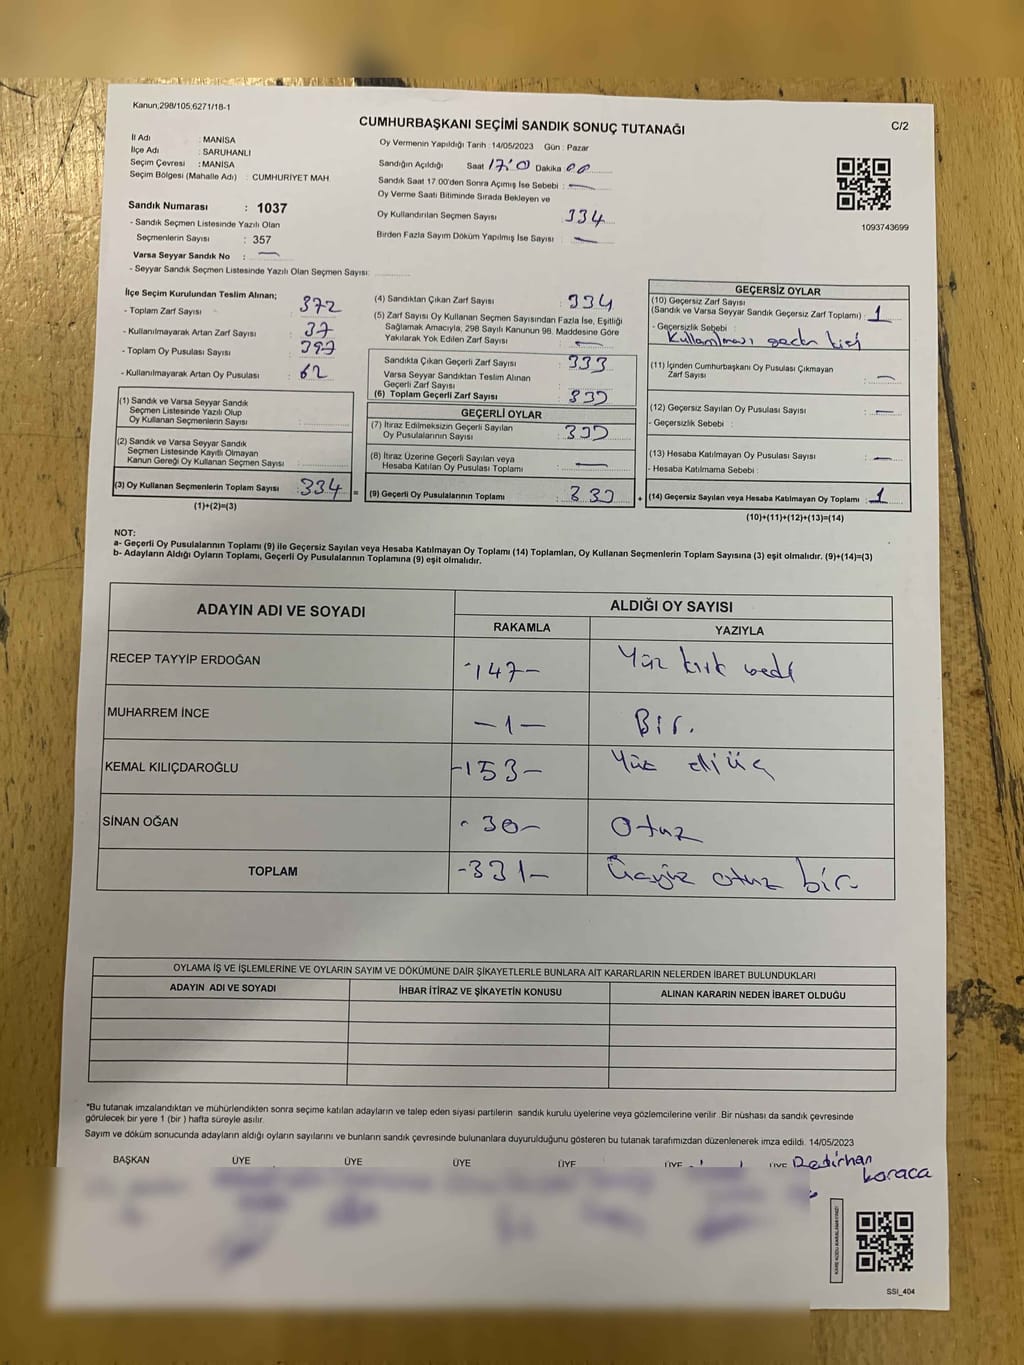 Kanun,298/105,6271/18-1
CUMHURBAŞKANI SEÇİMİ SANDIK SONUÇ TUTANAĞI
C/2
İl Adı : MANİSA
İlçe Adı : SARUHANLI
Seçim Çevresi : MANİSA
Seçim Bölgesi (Mahalle Adı) : CUMHURİYET MAH.
Sandık Numarası : 1037
- Sandık Seçmen Listesinde Yazılı Olan
Seçmenlerin Sayısı : 357
Varsa Seyyar Sandık No : —
- Seyyar Sandık Seçmen Listesinde Yazılı Olan Seçmen Sayısı:
Oy Vermenin Yapıldığı Tarih : 14/05/2023 Gün : Pazar
Sandığın Açıldığı Saat 17:0 Dakika 00
Sandık Saat 17.00'den Sonra Açımış İse Sebebi : —
Oy Verme Saati Bitiminde Sırada Bekleyen ve
Oy Kullandırılan Seçmen Sayısı 334
Birden Fazla Sayım Döküm Yapılmış İse Sayısı : —
1093743699
İlçe Seçim Kurulundan Teslim Alınan;
- Toplam Zarf Sayısı : 372
- Kullanılmayarak Artan Zarf Sayısı : 37
- Toplam Oy Pusulası Sayısı : 397
- Kullanılmayarak Artan Oy Pusulası : 62
(1) Sandık ve Varsa Seyyar Sandık
Seçmen Listesinde Yazılı Olup
Oy Kullanan Seçmenlerin Sayısı :
(2) Sandık ve Varsa Seyyar Sandık
Seçmen Listesinde Kayıtlı Olmayan
Kanun Gereği Oy Kullanan Seçmen Sayısı :
(3) Oy Kullanan Seçmenlerin Toplam Sayısı : 334 =
(1)+(2)=(3)
(4) Sandıktan Çıkan Zarf Sayısı : 334
(5) Zarf Sayısı Oy Kullanan Seçmen Sayısından Fazla İse, Eşitliği
Sağlamak Amacıyla, 298 Sayılı Kanunun 98. Maddesine Göre
Yakılarak Yok Edilen Zarf Sayısı : —
Sandıkta Çıkan Geçerli Zarf Sayısı : 333
Varsa Seyyar Sandıktan Teslim Alınan
Geçerli Zarf Sayısı
(6) Toplam Geçerli Zarf Sayısı : 333
GEÇERLİ OYLAR
(7) İtiraz Edilmeksizin Geçerli Sayılan
Oy Pusulalarının Sayısı : 333
(8) İtiraz Üzerine Geçerli Sayılan veya
Hesaba Katılan Oy Pusulası Toplamı : —
(9) Geçerli Oy Pusulalarının Toplamı : 333 +
GEÇERSİZ OYLAR
(10) Geçersiz Zarf Sayısı
(Sandık ve Varsa Seyyar Sandık Geçersiz Zarf Toplamı) : 1
- Geçersizlik Sebebi :
(11) İçinden Cumhurbaşkanı Oy Pusulası Çıkmayan
Zarf Sayısı : —
(12) Geçersiz Sayılan Oy Pusulası Sayısı : —
- Geçersizlik Sebebi :
(13) Hesaba Katılmayan Oy Pusulası Sayısı : —
- Hesaba Katılmama Sebebi :
(14) Geçersiz Sayılan veya Hesaba Katılmayan Oy Toplamı : 1
(10)+(11)+(12)+(13)=(14)
NOT:
a- Geçerli Oy Pusulalarının Toplamı (9) ile Geçersiz Sayılan veya Hesaba Katılmayan Oy Toplamı (14) Toplamları, Oy Kullanan Seçmenlerin Toplam Sayısına (3) eşit olmalıdır. (9)+(14)=(3)
b- Adayların Aldığı Oyların Toplamı, Geçerli Oy Pusulalarının Toplamına (9) eşit olmalıdır.
ADAYIN ADI VE SOYADI
ALDIĞI OY SAYISI
RAKAMLA YAZIYLA
RECEP TAYYİP ERDOĞAN -147- Yüz kırk yedi
MUHARREM İNCE -1- Bir.
KEMAL KILIÇDAROĞLU -153- Yüz elli üç
SİNAN OĞAN -30- Otuz
TOPLAM -331- Üçyüz otuz bir.
OYLAMA İŞ VE İŞLEMLERİNE VE OYLARIN SAYIM VE DÖKÜMÜNE DAİR ŞİKAYETLERLE BUNLARA AİT KARARLARIN NELERDEN İBARET BULUNDUKLARI
ADAYIN ADI VE SOYADI İHBAR İTİRAZ VE ŞİKAYETİN KONUSU ALINAN KARARIN NEDEN İBARET OLDUĞU
*Bu tutanak imzalandıktan ve mühürlendikten sonra seçime katılan adayların ve talep eden siyasi partilerin sandık kurulu üyelerine veya gözlemcilerine verilir .Bir nüshası da sandık çevresinde
görülecek bir yere 1 (bir ) hafta süreyle asılır.
Sayım ve döküm sonucunda adayların aldığı oyların sayılarını ve bunların sandık çevresinde bulunanlara duyurulduğunu gösteren bu tutanak tarafımızdan düzenlenerek imza edildi. 14/05/2023
BAŞKAN ÜYE ÜYE ÜYE ÜYE ÜYE ÜYE Bedirhan
Karaca
SSİ_404